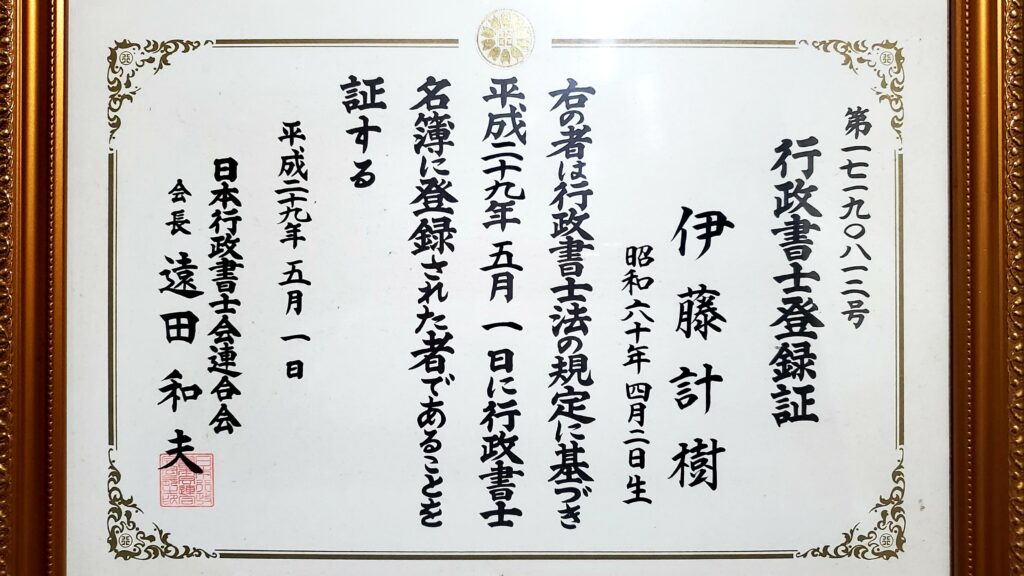 第一七一九〇八一二号
行政書士登録証
伊藤計樹
昭和六十年四月二日生
右の者は行政書士法の規定に基づき
平成二十九年五月一日に行政書士
名簿に登録された者であることを
証する
平成二十九年五月一日
日本行政書士会連合会
会長 遠田和夫